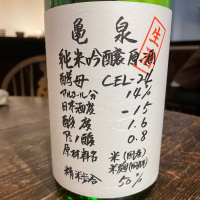 亀泉
生酒
純米吟醸原酒
酵母 CEL-24
アルコール分 14%
日本酒度 -15
酸度 1.6
アミノ酸 0.8
原材料名 米(国産)
米麹(国産米)
精米歩合 50%